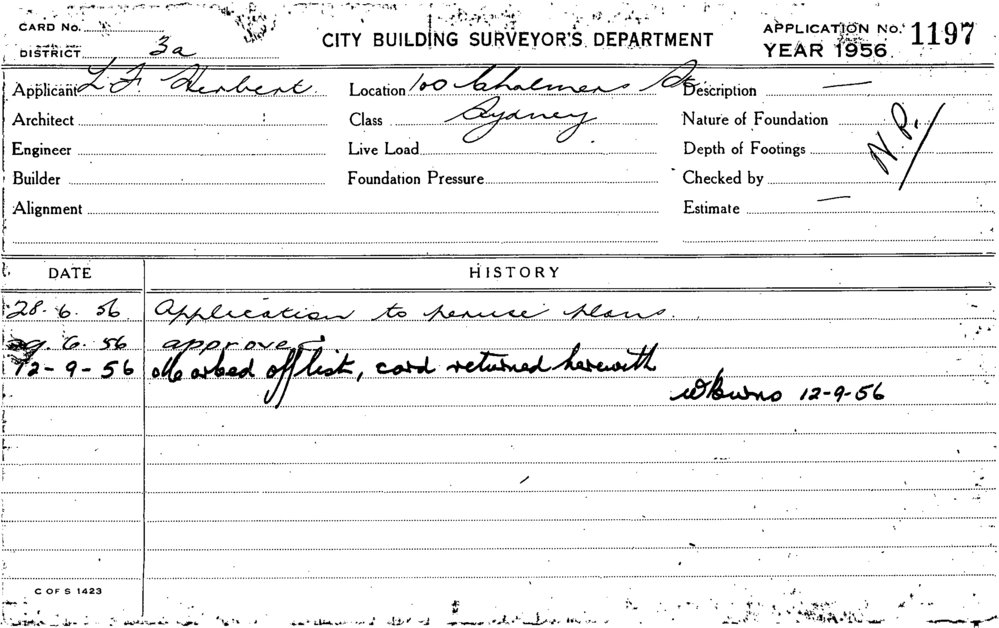 CARD No.
DISTRICT 3a
CITY BUILDING SURVEYOR'S DEPARTMENT
APPLICATION No. 1197
YEAR 1956
Applicant L F Herbert
Location 100 Chalmers St
Description —
Architect
Class Sydney
Nature of Foundation
N.P.
Engineer
Live Load
Depth of Footings
Builder
Foundation Pressure
Checked by
Alignment
Estimate —
DATE HISTORY
28. 6. 56 Application to peruse plans.
9. 6. 56 approved
12-9-56 Marked off list, card returned herewith
WBurns 12-9-56
C OF S 1423